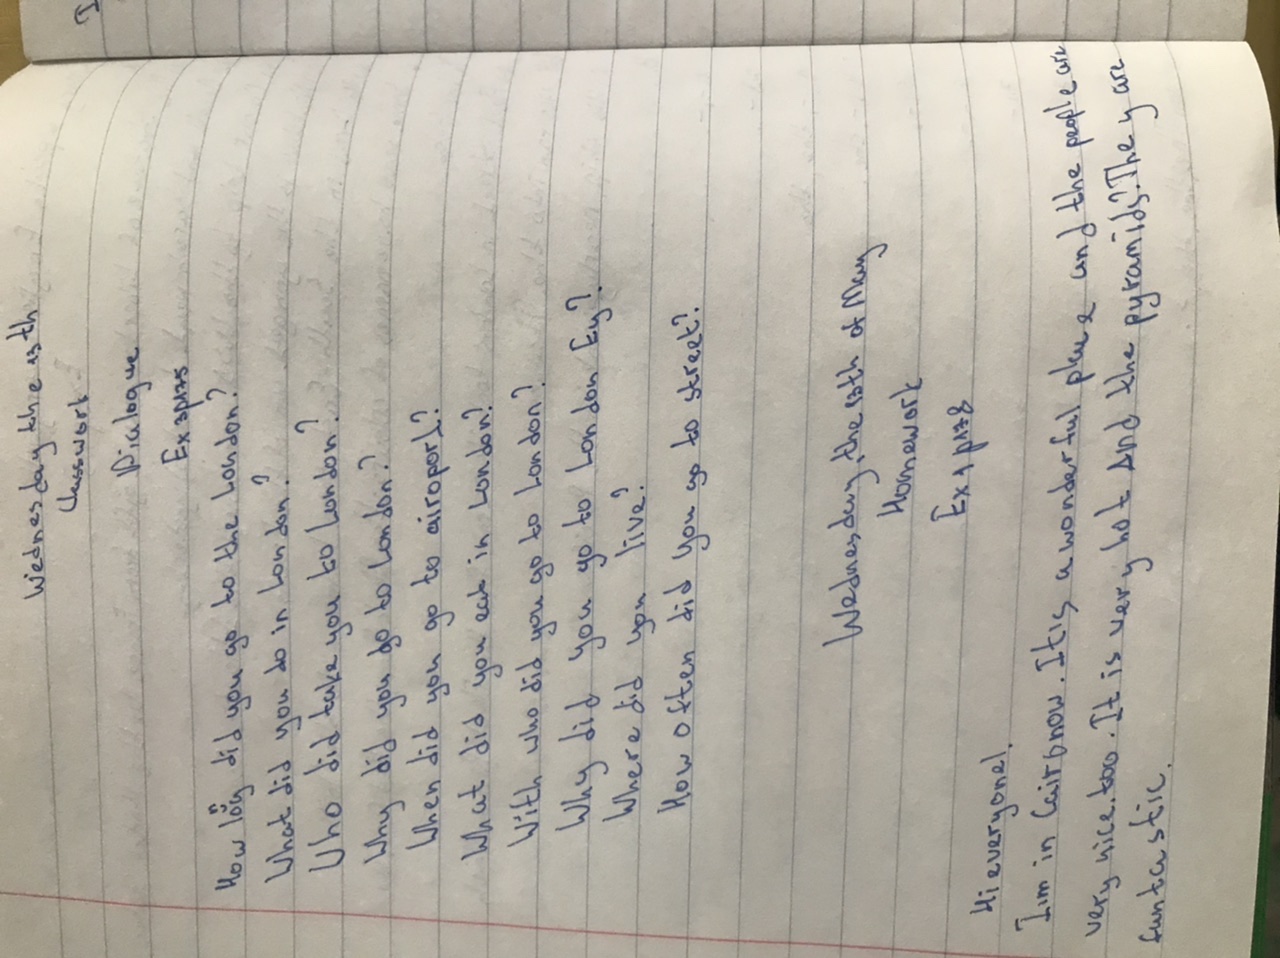 Wednesday the 13th
Classwork
Dialogue
Ex 3p175
How long did you go to the London?
What did you do in London?
Who did take you to London?
Why did you go to London?
When did you go to airoport?
What did you eat in London?
With who did you go to London?
Why did you go to London Ey?
Where did you live?
How often did you go to street?
Wednesday, the 13th of May
Homework
Ex 1 p178
Hi everyone!
I'm in Cairo now. It is a wonderful place and the people are
very nice too. It is very hot And the pyramids? They are
funtastic.